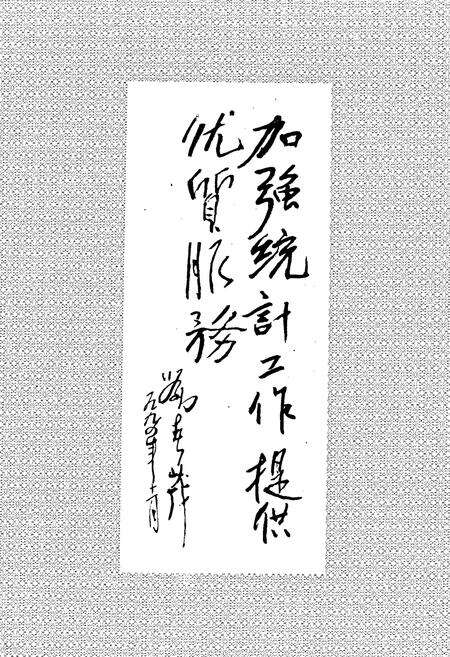 加強統計工作提供
优質服務
一九九 年 月